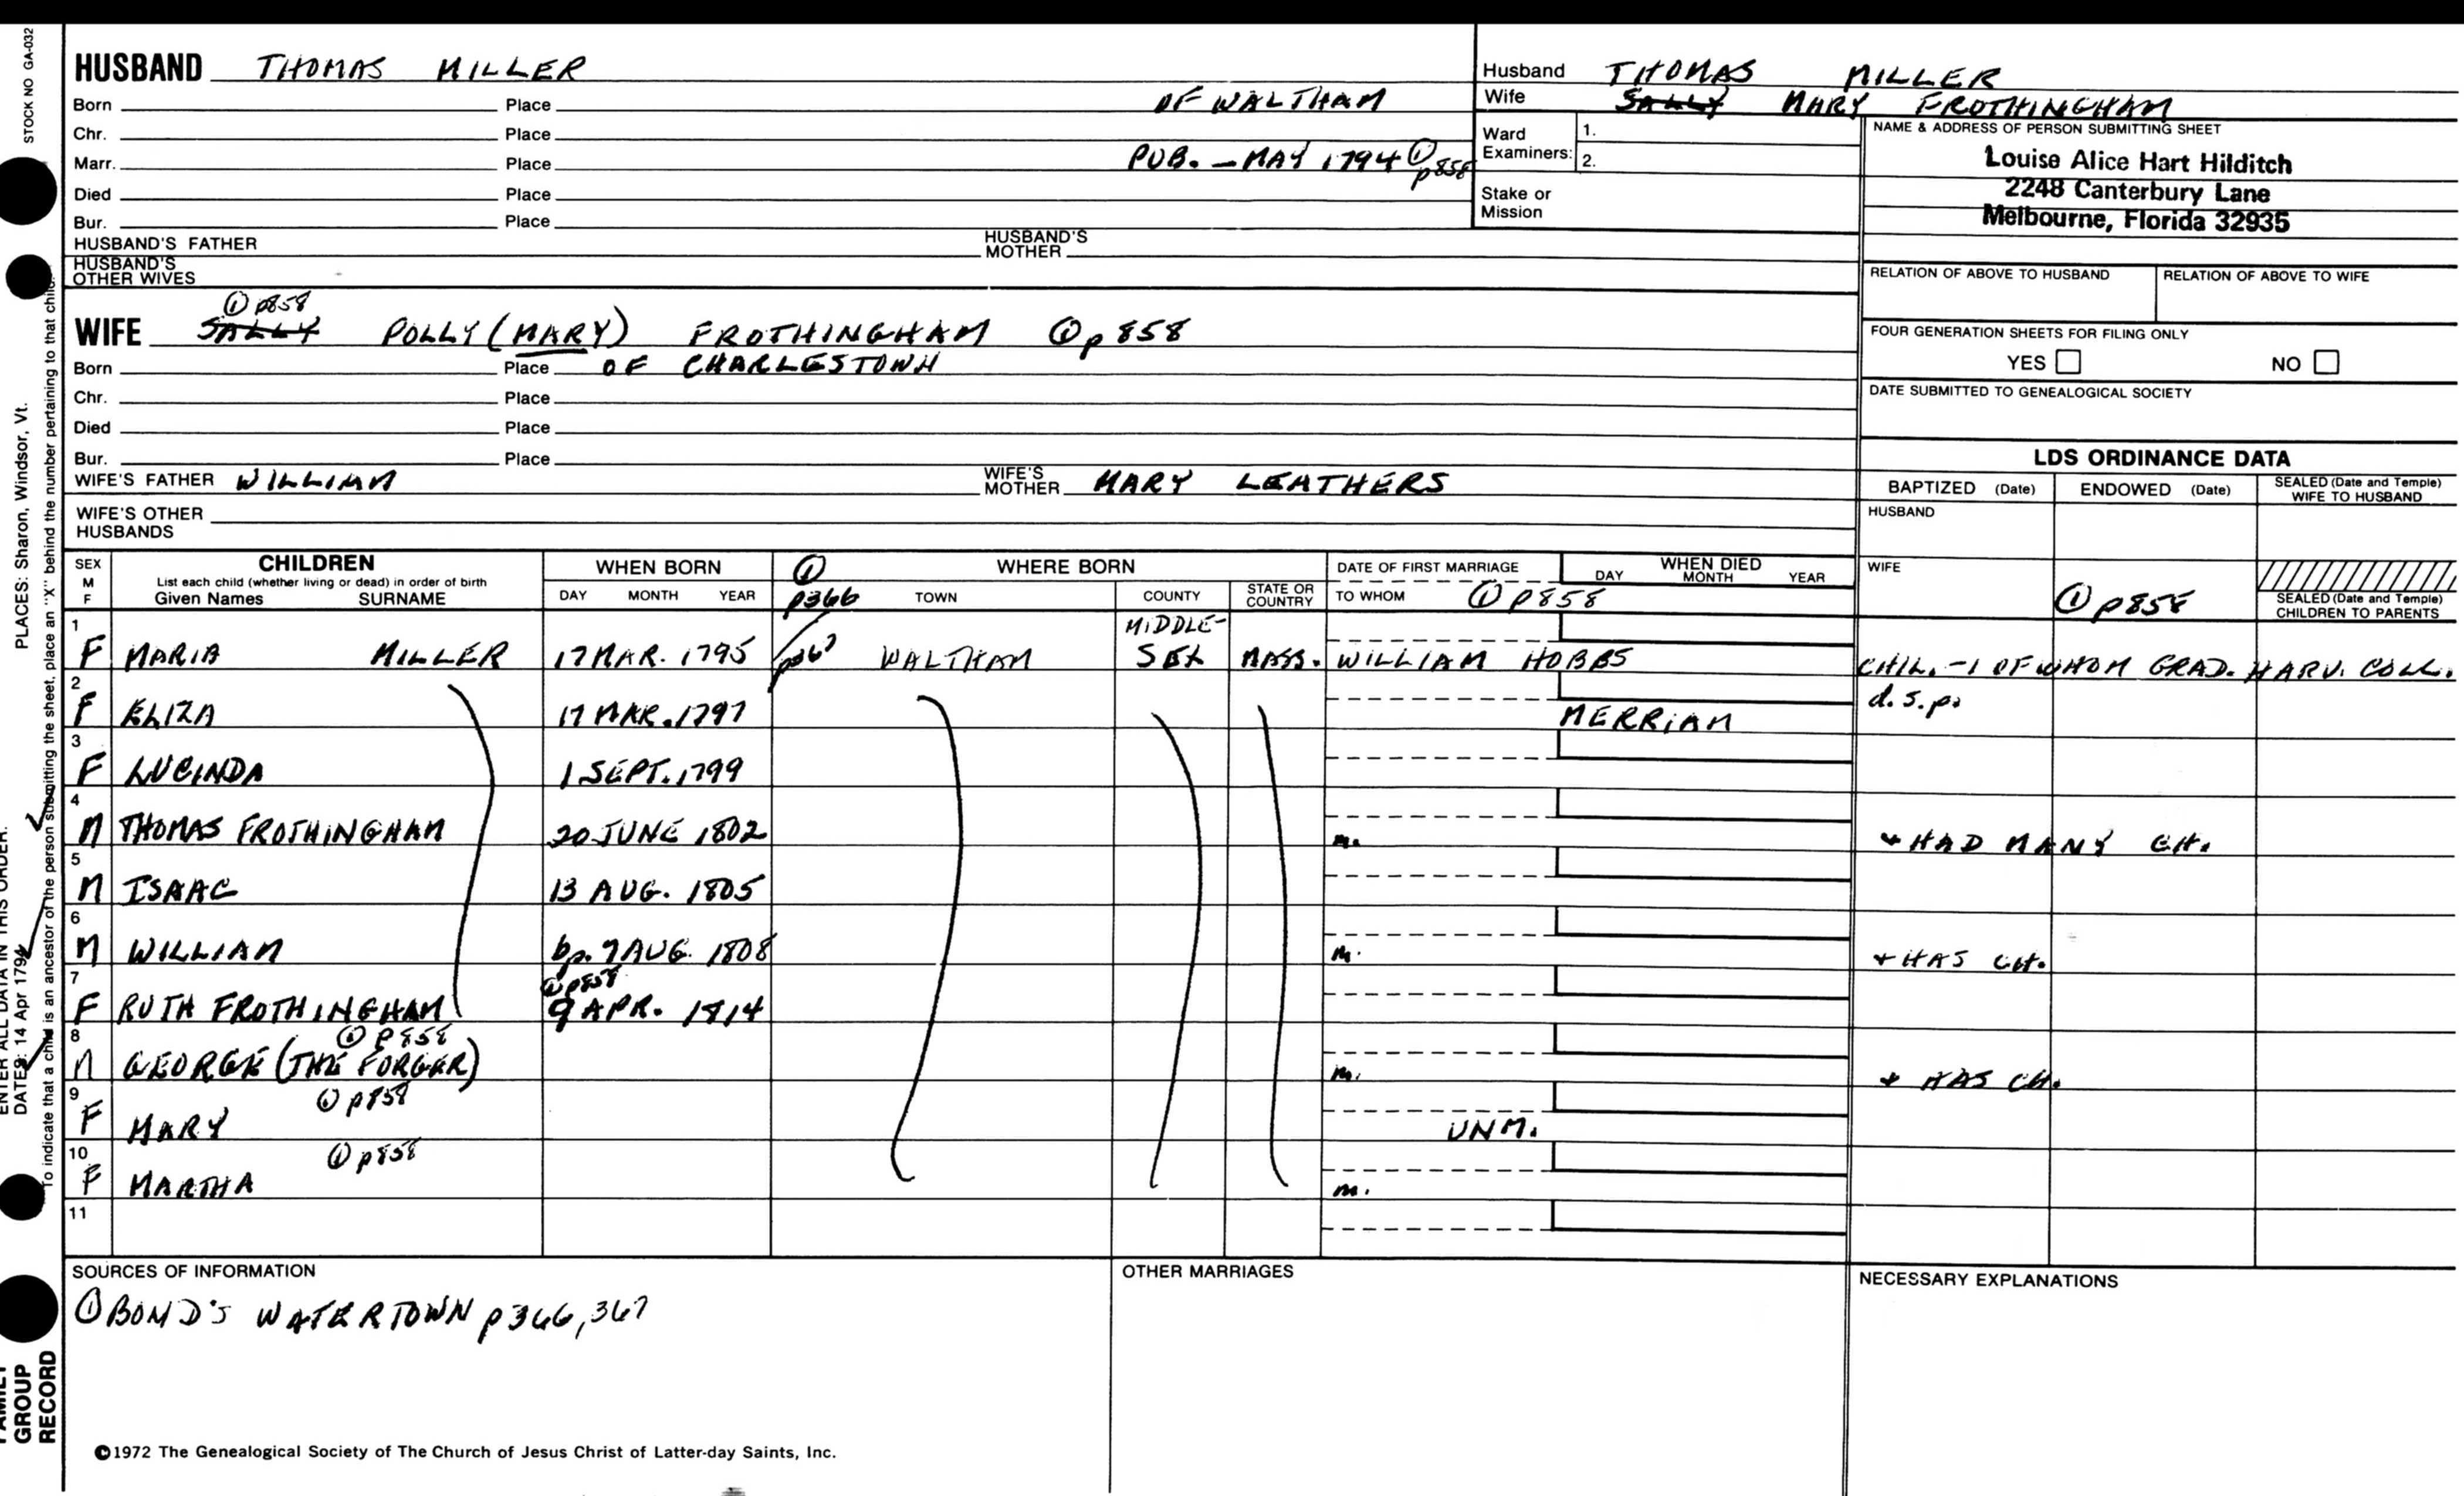 STOCK NO GA-032
PLACES: Sharon, Windsor, Vt.
ENTER ALL DATA IN THIS ORDER:
DATES: 14 Apr 1794
To indicate that a child is an ancestor of the person submitting the sheet, place an "X" behind the number pertaining to that child.
FAMILY GROUP RECORD
HUSBAND THOMAS MILLER
Born Place OF WALTHAM
Chr. Place
Marr. Place PUB. - MAY 1794 ① p858
Died Place
Bur. Place
HUSBAND'S FATHER HUSBAND'S MOTHER
HUSBAND'S OTHER WIVES
Husband THOMAS MILLER
Wife SALLY MARY FROTHINGHAM
Ward Examiners: 1.
2.
Stake or Mission
NAME & ADDRESS OF PERSON SUBMITTING SHEET
Louise Alice Hart Hilditch
2248 Canterbury Lane
Melbourne, Florida 32935
RELATION OF ABOVE TO HUSBAND RELATION OF ABOVE TO WIFE
FOUR GENERATION SHEETS FOR FILING ONLY
YES NO
DATE SUBMITTED TO GENEALOGICAL SOCIETY
① p858
WIFE SALLY POLLY (MARY) FROTHINGHAM ① p858
Born Place OF CHARLESTOWN
Chr. Place
Died Place
Bur. Place
WIFE'S FATHER WILLIAM WIFE'S MOTHER MARY LEATHERS
WIFE'S OTHER HUSBANDS
LDS ORDINANCE DATA
BAPTIZED (Date) ENDOWED (Date) SEALED (Date and Temple) WIFE TO HUSBAND
HUSBAND
WIFE
① p858
SEALED (Date and Temple) CHILDREN TO PARENTS
SEX M F CHILDREN WHEN BORN ① WHERE BORN DATE OF FIRST MARRIAGE WHEN DIED
List each child (whether living or dead) in order of birth
Given Names SURNAME DAY MONTH YEAR p366 TOWN COUNTY STATE OR COUNTRY TO WHOM ① p858 DAY MONTH YEAR
1 F MARIA MILLER 17 MAR. 1795 p367 WALTHAM MIDDLE-SEX MASS. WILLIAM HOBBS CHIL. - 1 OF WHOM GRAD. HARV. COLL.
2 F ELIZA 17 MAR. 1797 MERRIAM d.s.p.
3 F LUCINDA 1 SEPT. 1799
4 M THOMAS FROTHINGHAM 20 JUNE 1802 m. + HAD MANY CH.
5 M ISAAC 13 AUG. 1805
6 M WILLIAM bp. 7 AUG. 1808 m. + HAS CH.
① p858
7 F RUTH FROTHINGHAM 9 APR. 1814
① p858
8 M GEORGE (THE FORGER) m. + HAS CH.
① p858
9 F MARY UNM.
① p858
10 F MARTHA m.
11
SOURCES OF INFORMATION OTHER MARRIAGES NECESSARY EXPLANATIONS
① BOND'S WATERTOWN p366, 367
©1972 The Genealogical Society of The Church of Jesus Christ of Latter-day Saints, Inc.